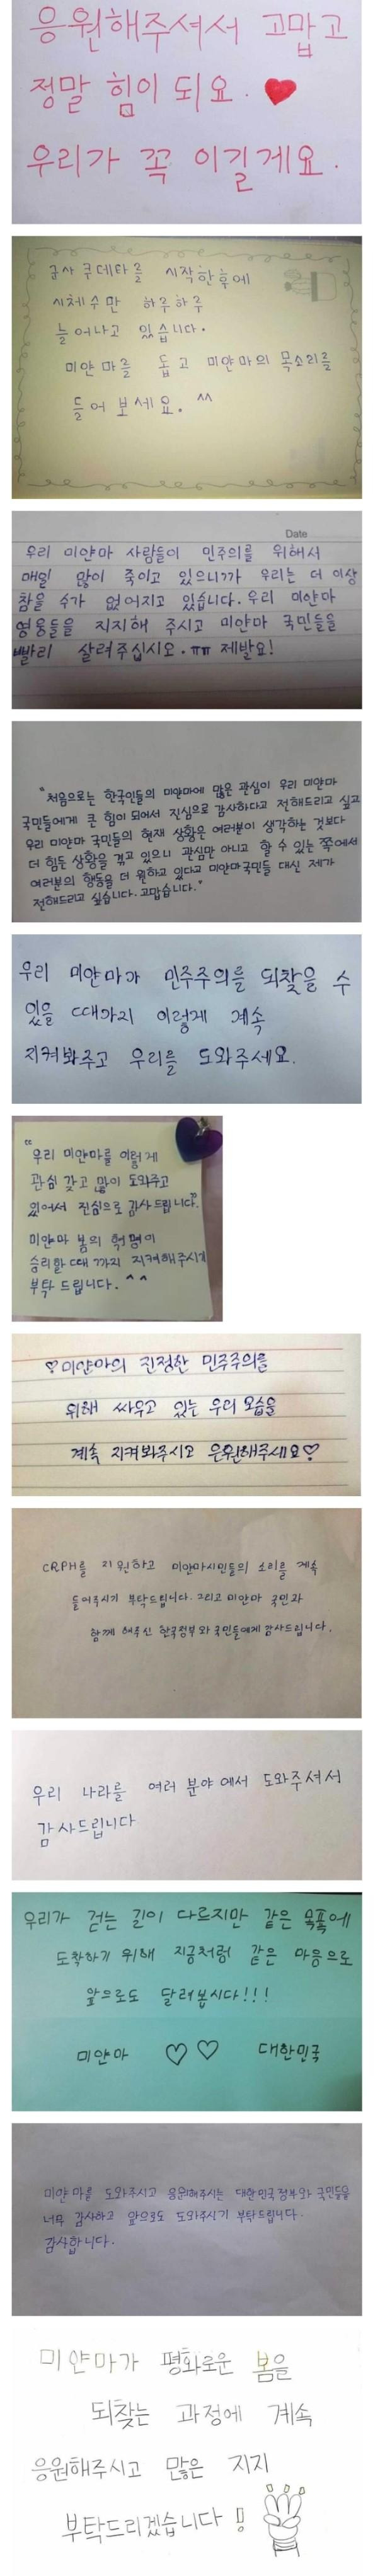 응원해주셔서 고맙고
정말 힘이 되요.
우리가 꼭 이길게요.
군사 쿠데타를 시작한후에
시체수만 하루하루
늘어나고 있습니다.
미얀마를 돕고 미얀마의 목소리를
들어 보세요. ^^
Date
우리 미얀마 사람들이 민주의를 위해서
매일 많이 죽이고 있으니까 우리는 더 이상
참을 수가 없어지고 있습니다. 우리 미얀마
영웅들을 지지해 주시고 미얀마 국민들을
빨리 살려주십시오. ㅠㅠ 제발요!
"처음으로는 한국인들의 미얀마에 많은 관심이 우리 미얀마
국민들에게 큰 힘이 되어서 진심으로 감사하다고 전해드리고 싶고
우리 미얀마 국민들의 현재 상황은 여러분이 생각하는 것보다
더 힘든 상황을 겪고 있으니 관심만 아니고 할 수 있는 쪽에서
여러분의 행동을 더 원하고 있다고 미얀마국민들 대신 제가
전해드리고 싶습니다. 고맙습니다."
우리 미얀마가 민주주의를 되찾을 수
있을 때까지 이렇게 계속
지켜봐주고 우리를 도와주세요.
"우리 미얀마를 이렇게
관심 갖고 많이 도와주고
있어서 진심으로 감사드립니다."
미얀마 봄의 혁명이
승리할 때 까지 지켜해주시게
부탁 드립니다. ^^
♡미얀마의 진정한 민주주의를
위해 싸우고 있는 우리 모습을
계속 지켜봐주시고 응원해주세요♡
CRPH를 지원하고 미얀마시민들의 소리를 계속
들어주시기 부탁드립니다. 그리고 미얀마 국민과
함께 해주신 한국정부와 국민들에게 감사드립니다.
우리 나라를 여러 분야에서 도와주셔서
감사드립니다
우리가 걷는 길이 다르지만 같은 목푝에
도착하기 위해 지금처럼 같은 마음으로
앞으로도 달려봅시다!!!
미얀마 ♡♡ 대한민국
미얀마를 도와주시고 응원해주시는 대한민국정부와 국민들을
너무 감사하고 앞으로도 도와주시기 부탁드립니다.
감사합니다.
미얀마가 평화로운 봄을
되찾는 과정에 계속
응원해주시고 많은 지지
부탁드리겠습니다!